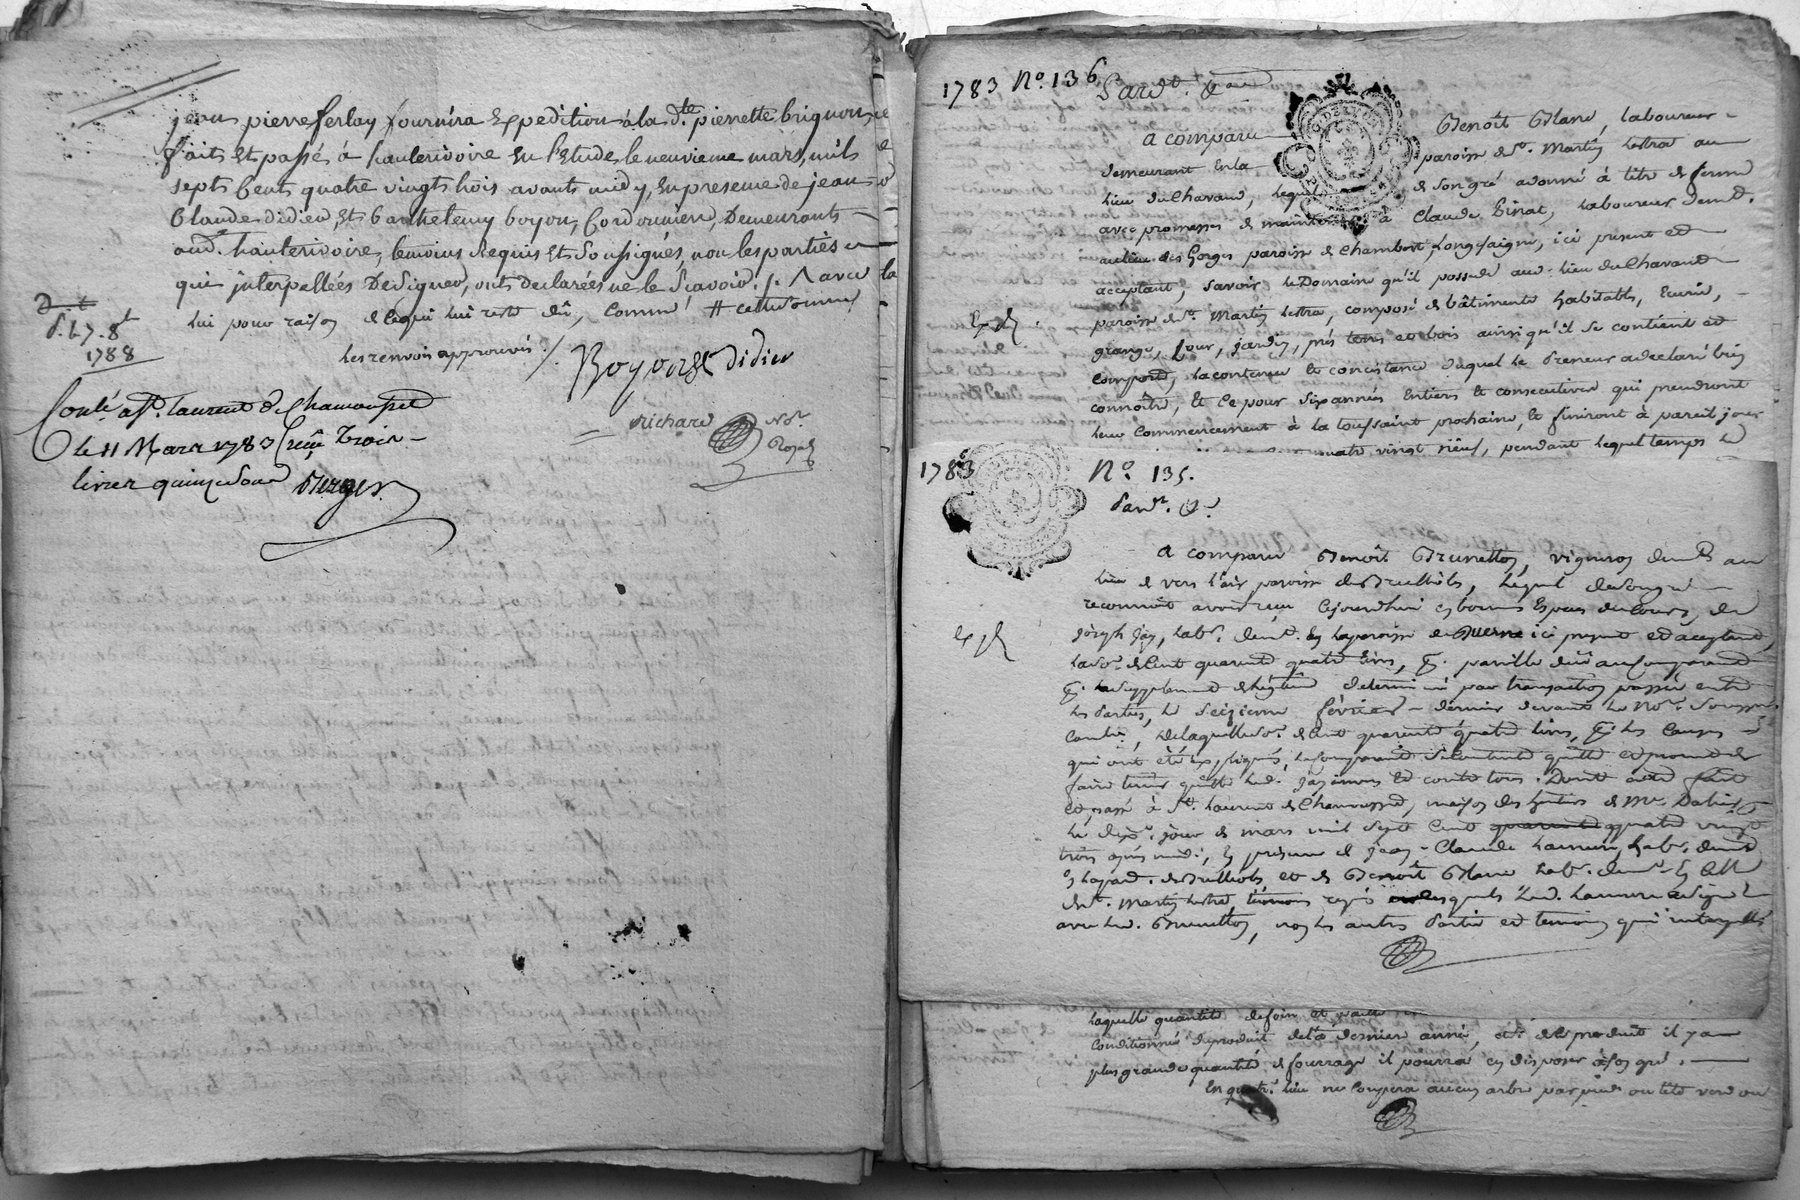 jean pierre ferlay fournira Expedition a la d.te pierrette brignon,
fait Et passé à hauterivoire En l'Etude le neuvieme mars, mil
sept Cent quatre vingt trois avant midy, En presence de jean
Claude didieu, Et barthelemy boyon, Cordonnier, Demeurants
aud.t hauterivoire, temoins Requis Et Soussignés, non les parties
qui jnterpellées De Signer, ont declarées ne le Scavoir ./. Λ avec
lui pour raison de ce qui lui reste dû, comme # cette somme
les renvois approuvés ./.
Boyon Didieu
Richard No.re
Royal
1788
Conlé a St. Laurent de Chamousset
le 11 Mars 1783 Reçu trois
livres quinze sous
1783 No. 136
Pard.t &
A comparu Benoît Blanc, laboureur
demeurant en la paroisse de St. Martin Lestra au
lieu du Chavand, lequel de son gré a donné à titre de ferme
avec promesses de maintenir à Claude Pinat, laboureur dem.t
au lieu des Gorges paroisse de Chambost Longessaigne, ici present et
acceptant, savoir le Domaine qu'il possede aud. lieu du Chavand
paroisse de St. Martin Lestra, composé de bâtiments habitables, Ecurie,
grange, Cour, jardin, prés terres et bois ainsi qu'il se contient et
comporte, la contenue et consistance duquel le Preneur a declaré bien
connoître, Et Ce pour Six années Entieres et consecutives qui prendront
leur Commencement à la toussaint prochaine, et finiront à pareil jour
quatre vingt neuf, pendant lequel temps le
1783 No. 135.
Pard.t &.
A comparu Benoît Brunetton, vigneron dem.t au
lieu de vers l'air paroisse de Brullioles, lequel de son gré
reconnoit avoir reçu Cejourd'hui en bonnes Especes du Cours, de
Joseph Jay, lab.r dem.t en la paroisse de Duerne ici present et acceptant,
la so.e de Cent quarante quatre livres, pareille due au Comparant
determiné par transaction passée entre
les Parties, le seizieme fevrier dernier devant le No.re Soussigné
de laquelle so.e de Cent quarante quatre livres, les Causes
qui ont été Expliquées, le Comparant Se Contente quitte et promet de
faire tenir quitte led. Jay envers Et contre tous. Dont acte fait
et passé à St. Laurent de Chamousset, maison des heritiers de Mr.
le dix.e jour de mars mil Sept Cent quarante quatre vingt
trois après midi, En presence de Jean Claude Laurent, lab.r dem.t
en la par. de Brullioles et de Benoît Blanc lab.r dem.t en celle
de St. Martin Lestra temoins requis desquels led. Laurent a Signé
avec led. Brunetton, non les autres Partie et temoin qui interpellés
laquelle quantité de foin et paille
conditionnée du produit de la derniere année, et si de ce produit il y a
plus grande quantité de fourrage il pourra en disposer à son gré.
En quatr.e lieu ne Coupera aucun arbre par pied ou tête vert ou